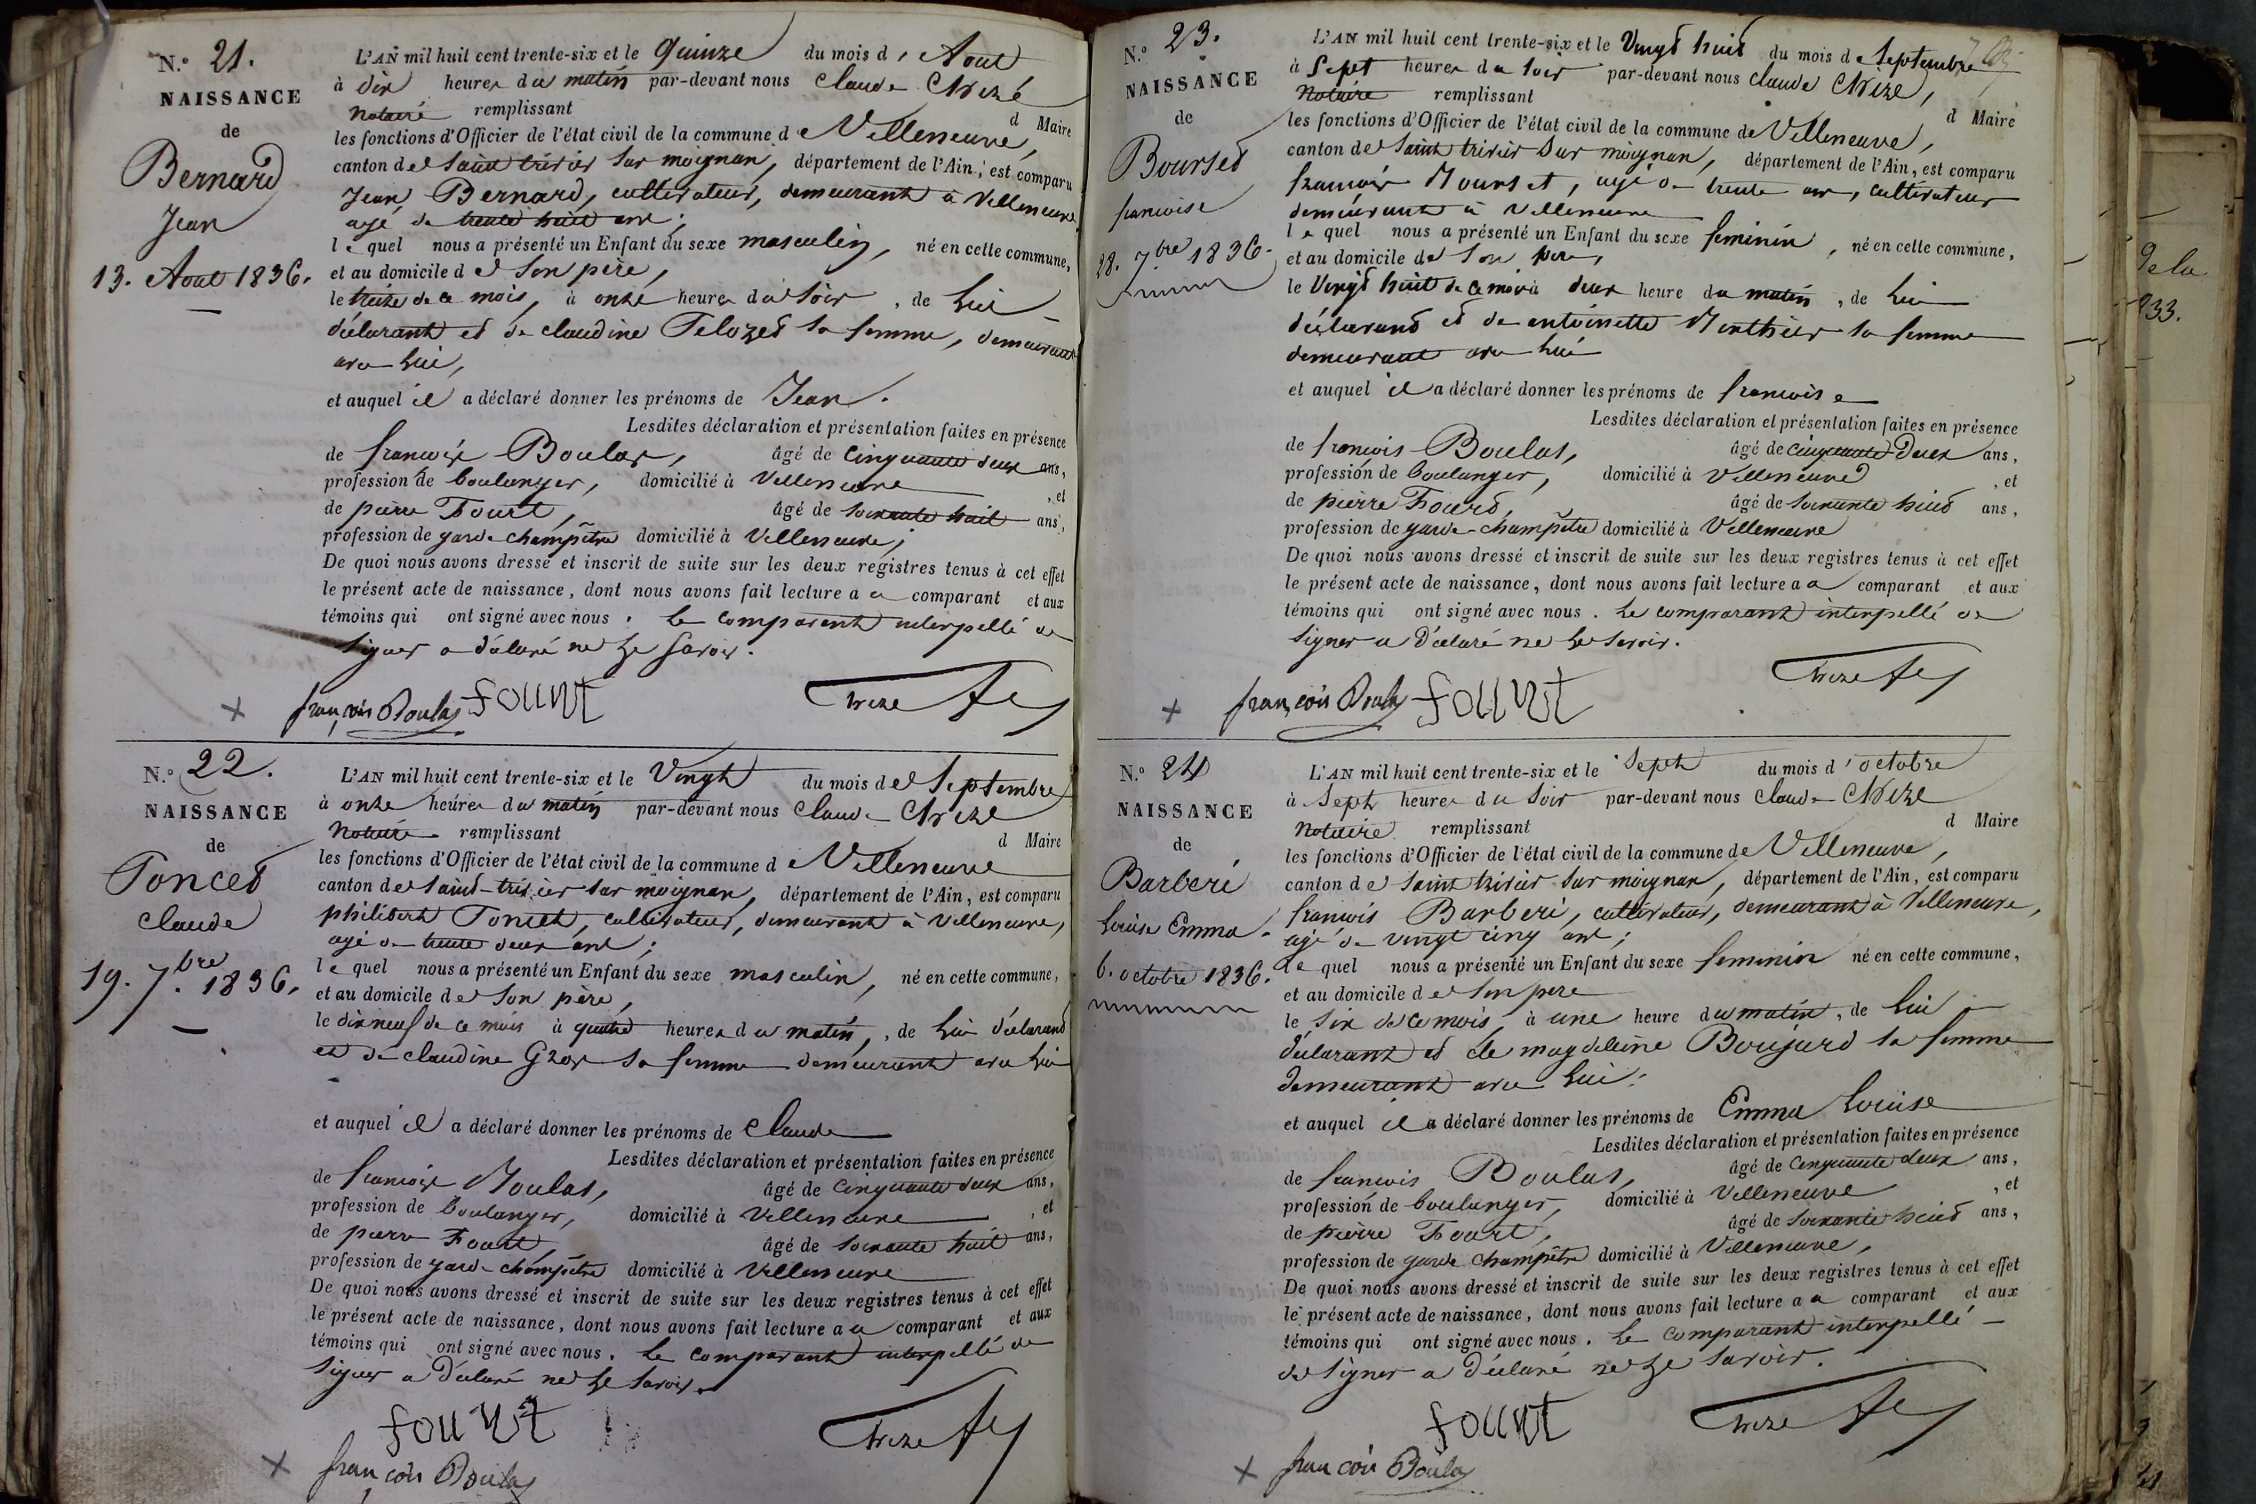 N.° 21.
NAISSANCE
de
Bernard
Jean
13. Aout 1836.
L'AN mil huit cent trente-six et le quinze du mois d' Aout
à dix heures du matin par-devant nous Claude
Notaire remplissant
d Maire
les fonctions d'Officier de l'état civil de la commune de Villeneuve,
canton de Saint trivier sur moignan, département de l'Ain, est comparu
Jean Bernard, cultivateur, demeurant à Villeneuve
agé de trente huit ans;
le quel nous a présenté un Enfant du sexe masculin, né en cette commune,
et au domicile de son père,
le treize de ce mois, à onze heures du soir, de lui
déclarant et de claudine sa femme, demeurant
avec lui,
et auquel il a déclaré donner les prénoms de Jean.
Lesdites déclaration et présentation faites en présence
de francois Boulas, âgé de cinquante deux ans,
profession de boulanger, domicilié à Villeneuve, et
de pierre Fourt, âgé de soixante huit ans,
profession de garde-champêtre domicilié à Villeneuve;
De quoi nous avons dressé et inscrit de suite sur les deux registres tenus à cet effet
le présent acte de naissance, dont nous avons fait lecture au comparant et aux
témoins qui ont signé avec nous. Le comparant interpellé de
signer a déclaré ne le savoir.
françois Boulas fourt
N.° 22.
NAISSANCE
de
Poncet
Claude
19. 7.bre 1836.
L'AN mil huit cent trente-six et le Vingt du mois de Septembre
à onze heures du matin par-devant nous Claude
Notaire remplissant
d Maire
les fonctions d'Officier de l'état civil de la commune de Villeneuve
canton de Saint-trivier sur moignan, département de l'Ain, est comparu
philibert Poncet, cultivateur, demeurant à Villeneuve,
agé de trente deux ans;
le quel nous a présenté un Enfant du sexe masculin, né en cette commune,
et au domicile de son père,
le dix neuf de ce mois à quatre heures du matin, de lui déclarant
et de claudine Gros sa femme demeurant avec lui
et auquel il a déclaré donner les prénoms de Claude
Lesdites déclaration et présentation faites en présence
de francois Boulas, âgé de cinquante deux ans,
profession de boulanger, domicilié à Villeneuve, et
de pierre Fourt, âgé de soixante huit ans,
profession de garde-champêtre domicilié à Villeneuve
De quoi nous avons dressé et inscrit de suite sur les deux registres tenus à cet effet
le présent acte de naissance, dont nous avons fait lecture au comparant et aux
témoins qui ont signé avec nous. Le comparant interpellé de
signer a déclaré ne le savoir.
fourt
françois Boulas
N.° 23.
NAISSANCE
de
Bourset
francoise
28. 7.bre 1836.
L'AN mil huit cent trente-six et le Vingt huit du mois de Septembre
à Sept heures du soir par-devant nous Claude
Notaire remplissant
d Maire
les fonctions d'Officier de l'état civil de la commune de Villeneuve,
canton de Saint trivier sur moignan, département de l'Ain, est comparu
francois Bourset, agé de trente ans, cultivateur
demeurant à Villeneuve
le quel nous a présenté un Enfant du sexe feminin, né en cette commune,
et au domicile de son pere,
le Vingt huit de ce mois à deux heure du matin, de lui
déclarant et de antoinette sa femme
demeurant avec lui
et auquel il a déclaré donner les prénoms de francoise
Lesdites déclaration et présentation faites en présence
de francois Boulas, âgé de cinquante Deux ans,
profession de boulanger, domicilié à Villeneuve, et
de pierre Fourt, âgé de soixante huit ans,
profession de garde-champêtre domicilié à Villeneuve
De quoi nous avons dressé et inscrit de suite sur les deux registres tenus à cet effet
le présent acte de naissance, dont nous avons fait lecture au comparant et aux
témoins qui ont signé avec nous. Le comparant interpellé de
signer a déclaré ne le savoir.
françois Boulas fourt
N.° 24
NAISSANCE
de
Barberi
Louise Emma.
6. octobre 1836.
L'AN mil huit cent trente-six et le Sept du mois d'octobre
à Sept heures du soir par-devant nous Claude
Notaire remplissant
d Maire
les fonctions d'Officier de l'état civil de la commune de Villeneuve,
canton de Saint trivier sur moignan, département de l'Ain, est comparu
francois Barberi, cultivateur, demeurant à Villeneuve,
agé de vingt cinq ans;
le quel nous a présenté un Enfant du sexe feminin né en cette commune,
et au domicile de son pere
le six de ce mois, à une heure du matin, de lui
déclarant et de magdeleine Boujard sa femme
demeurant avec lui;
et auquel il a déclaré donner les prénoms de Emma Louise
Lesdites déclaration et présentation faites en présence
de francois Boulas, âgé de cinquante deux ans,
profession de boulanger, domicilié à Villeneuve, et
de pierre Fourt, âgé de soixante huit ans,
profession de garde champêtre domicilié à Villeneuve,
De quoi nous avons dressé et inscrit de suite sur les deux registres tenus à cet effet
le présent acte de naissance, dont nous avons fait lecture au comparant et aux
témoins qui ont signé avec nous. Le comparant interpellé
de signer a déclaré ne le savoir.
fourt
françois Boulas
de la
233.